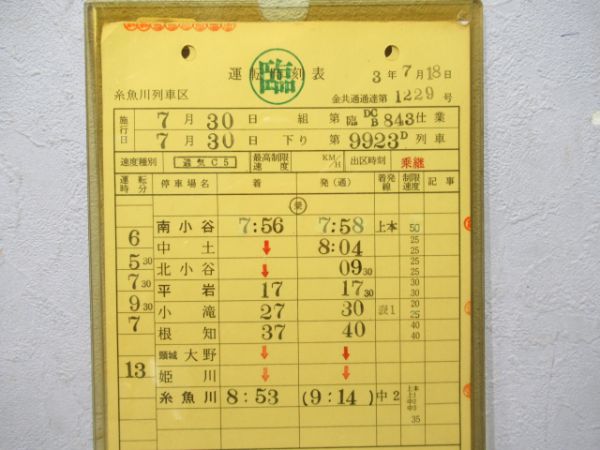 運転時刻表
臨
3年7月18日
糸魚川列車区
金共通通達第1229号
施行日 7月30日 組 第 臨DCB843仕業
7月30日 下り 第9923D列車
速度種別 通気C5 最高制限速度 KM/H 出区時刻 乗継
運転時分 停車場名 着 発(通) 着発線 制限速度 記事
乗
南小谷 7:56 7:58 上本 50
6
中土 ↓ 8:04 25 25
5 30
北小谷 ↓ 09 30 25 25
7 30
平岩 17 17 30 25 25
9 30
小滝 27 30 1 20 25
7
根知 37 40 40 40
頸城大野 ↓ ↓
13
姫川 ↓ ↓
糸魚川 8:53 (9:14) 中2 35